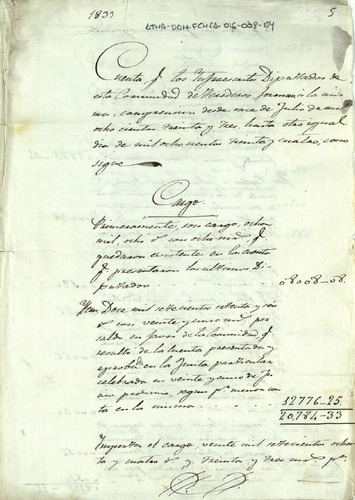 1833
5
ATHA-DDH-FCHSA 016-008-04
Cuenta q.e los Infraescritos Diputados de
esta Comunidad de Herederos forman a la mis-
ma, comprensiva desde once de Julio de mil
ocho cientos treinta y tres, hasta otro igual
dia de mil ocho cientos treinta y cuatro, como
sigue
Cargo
Primeramente son cargo, ocho
mil, ocho r.s con ocho mrs q.e
quedaron existente en la cuenta
q.e presentaron los ultimos Di-
putados
08008-08.
Ytem Doce mil setecientos setenta y seis
r.s con veinte y cinco mrs por
saldo en favor de la Comunidad q.e
resulto de la cuenta presentada y
aprovada en la Junta particular
celebrada en veinte y cinco de Ju-
nio proximo, segun p.r menor cons-
ta en la misma
12776-25
20,784-33
Importa el cargo, veinte mil setecientos ochen-
ta y cuatro r.s y treinta y tres mrs